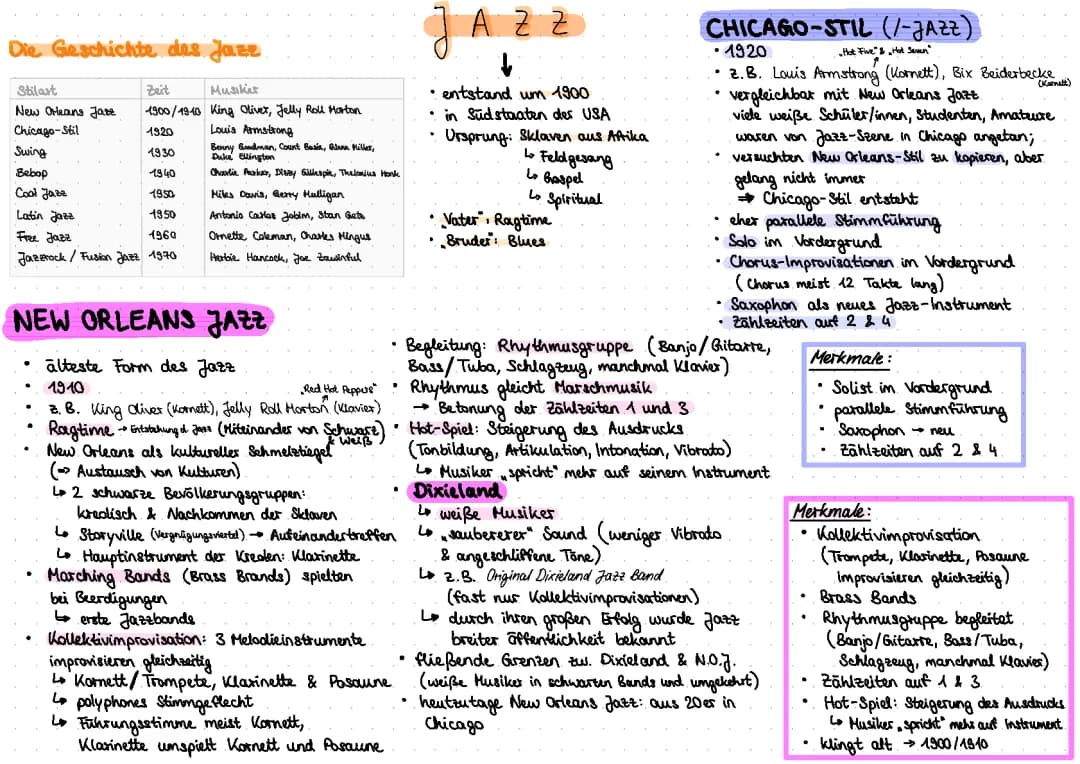 JAZZ
Die Geschichte des Jazz
Stilart Zeit Musiker
New Orleans Jazz 1900/1910 King Oliver, Jelly Roll Morton
Chicago-Stil 1920 Louis Armstrong
Swing 1930 Benny Goodman, Count Basie, Glenn Miller,
Duke Ellington
Bebop 1940 Charlie Parker, Dizzy Gillespie, Thelonius Monk
Cool Jazz 1950 Miles Davis, Gerry Mulligan
Latin Jazz 1950 Antonio Carlos Jobim, Stan Getz
Free Jazz 1960 Ornette Coleman, Charles Mingus
Jazzrock / Fusion Jazz 1970 Herbie Hancock, Joe Zawinful
↓
• entstand um 1900
• in Südstaaten der USA
• Ursprung: Sklaven aus Afrika
↳ Feldgesang
↳ Gospel
↳ Spiritual
• „Vater": Ragtime
• „Bruder": Blues
CHICAGO-STIL (/-JAZZ)
• 1920
„Hot Five" & „Hot Seven"
• z.B. Louis Armstrong (Kornett), Bix Beiderbecke
(Kornett)
• vergleichbar mit New Orleans Jazz
viele weiße Schüler/innen, Studenten, Amateure
waren von Jazz-Szene in Chicago angetan;
• versuchten New Orleans-Stil zu kopieren, aber
gelang nicht immer
⇒ Chicago-Stil entsteht
• eher parallele Stimmführung
• Solo im Vordergrund
• Chorus-Improvisationen im Vordergrund
(Chorus meist 12 Takte lang)
• Saxophon als neues Jazz-Instrument
• Zählzeiten auf 2 & 4
Merkmale:
• Solist im Vordergrund
• parallele Stimmführung
• Saxophon → neu
• Zählzeiten auf 2 & 4
NEW ORLEANS JAZZ
• älteste Form des Jazz
• 1910
„Red Hot Peppers"
• z.B. King Oliver (Kornett), Jelly Roll Morton (Klavier)
• Ragtime → Entstehung d. Jazz (Miteinander von Schwarz
& Weiß)
• New Orleans als kultureller Schmelztiegel
(⇒ Austausch von Kulturen)
↳ 2 schwarze Bevölkerungsgruppen:
kreolisch & Nachkommen der Sklaven
↳ Storyville (Vergnügungsviertel) → Aufeinandertreffen
↳ Hauptinstrument der Kreolen: Klarinette
• Marching Bands (Brass Brands) spielten
bei Beerdigungen
↳ erste Jazzbands
• Kollektivimprovisation: 3 Melodieinstrumente
improvisieren gleichzeitig
↳ Kornett/Trompete, Klarinette & Posaune
↳ polyphones Stimmgeflecht
↳ Führungsstimme meist Kornett,
Klarinette umspielt Kornett und Posaune
• Begleitung: Rhythmusgruppe (Banjo/Gitarre,
Bass/Tuba, Schlagzeug, manchmal Klavier)
• Rhythmus gleicht Marschmusik
→ Betonung der Zählzeiten 1 und 3
• Hot-Spiel: Steigerung des Ausdrucks
(Tonbildung, Artikulation, Intonation, Vibrato)
↳ Musiker „spricht" mehr auf seinem Instrument
• Dixieland
↳ weiße Musiker
↳ „saubererer" Sound (weniger Vibrato
& angeschliffene Töne)
↳ z.B. Original Dixieland Jazz Band
(fast nur Kollektivimprovisationen)
↳ durch ihren großen Erfolg wurde Jazz
breiter Öffentlichkeit bekannt
• fließende Grenzen zw. Dixieland & N.O.J.
(weiße Musiker in schwarzen Bands und umgekehrt)
• heutzutage New Orleans Jazz: aus 20er in
Chicago
Merkmale:
• Kollektivimprovisation
(Trompete, Klarinette, Posaune
improvisieren gleichzeitig)
• Brass Bands
• Rhythmusgruppe begleitet
(Banjo/Gitarre, Bass/Tuba,
Schlagzeug, manchmal Klavier)
• Zählzeiten auf 1 & 3
• Hot-Spiel: Steigerung des Ausdrucks
↳ Musiker „spricht" mehr auf Instrument
• klingt alt → 1900/1910